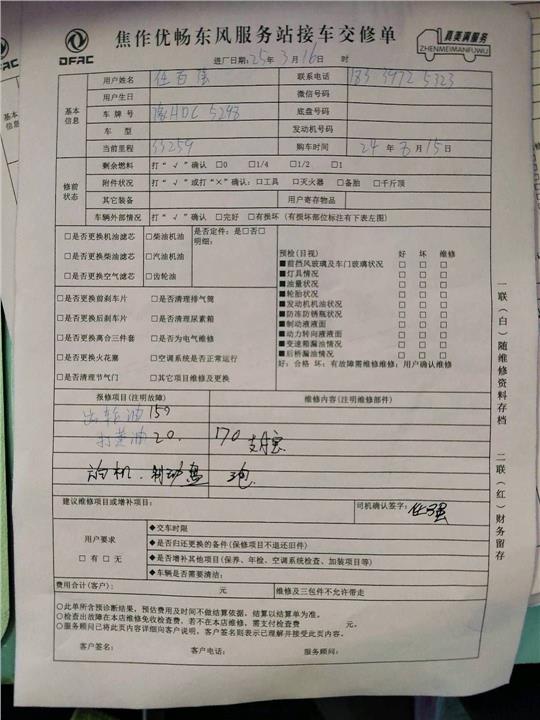 DFAC
焦作优畅东风服务站接车交修单
真美满服务
ZHENMEIMANFUWU
进厂日期: 25年 3月 16日 时
基本信息
用户姓名 联系电话 183 3972 5323
用户生日 微信号码
车牌号 豫HDC 5298 底盘号码
车型 发动机号码
当前里程 33259 购车时间 24年 8月 15日
修前状态
剩余燃料 打“√”确认 □0 □1/4 □1/2 □1
附件状况 打“√”或打“×”确认: □工具 □灭火器 □备胎 □千斤顶
其它装备 用户寄存物品
车辆外部情况 打“√”确认 □完好 □有损坏 (有损坏部位标注有下表左图)
□是否更换机油滤芯 □柴油机油 是否定件: 是□否□
明细:
□是否更换柴油滤芯 □汽油机油
□是否更换空气滤芯 □齿轮油
□是否更换前刹车片 □是否清理排气筒
□是否更换后刹车片 □是否清理尿素箱
□是否更换离合三件套 □是否为电气维修
□是否更换火花塞 □空调系统是否正常运行
□是否清理节气门 □其它项目维修及更换
预检(目视) 好 坏 维修
■前挡风玻璃及车门玻璃状况 □ □ □
■灯具情况 □ □ □
■油量状况 □ □ □
■轮胎状况 □ □ □
■发动机机油状况 □ □ □
■防冻防锈瓶状况 □ □ □
■制动液液面 □ □ □
■动力转向液液面 □ □ □
■变速箱漏油情况 □ □ □
■后桥漏油情况 □ □ □
好: 合格 坏: 有故障需维修维修: 用户确认维修
报修项目(注明故障) 维修内容(注明维修部件)
齿轮油 150
打黄油 20. 170 支付宝
制动盘
建议维修项目或增补项目: 司机确认签字: 任强
用户要求
□有 □无
◆交车时限
◆是否归还更换的备件(保修项目不退还旧件)
◆是否增补其他项目(保养、年检、空调系统检查、加装项目等)
◆车辆是否需要清洁:
费用合计(客户): 元 维修及三包件不允许带走
○此单所含预诊断结果, 预估费用及时间不做结算依据。结算以结算单为准。
○检查出故障在本店维修免收检查费, 若不在本店维修, 需支付检查费 元。
○服务顾问已将此页内容详细向客户说明, 客户签名则表示已理解并接受此页内容。
客户签名: 客户电话: 服务顾问:
一联(白)随维修资料存档 二联(红)财务留存